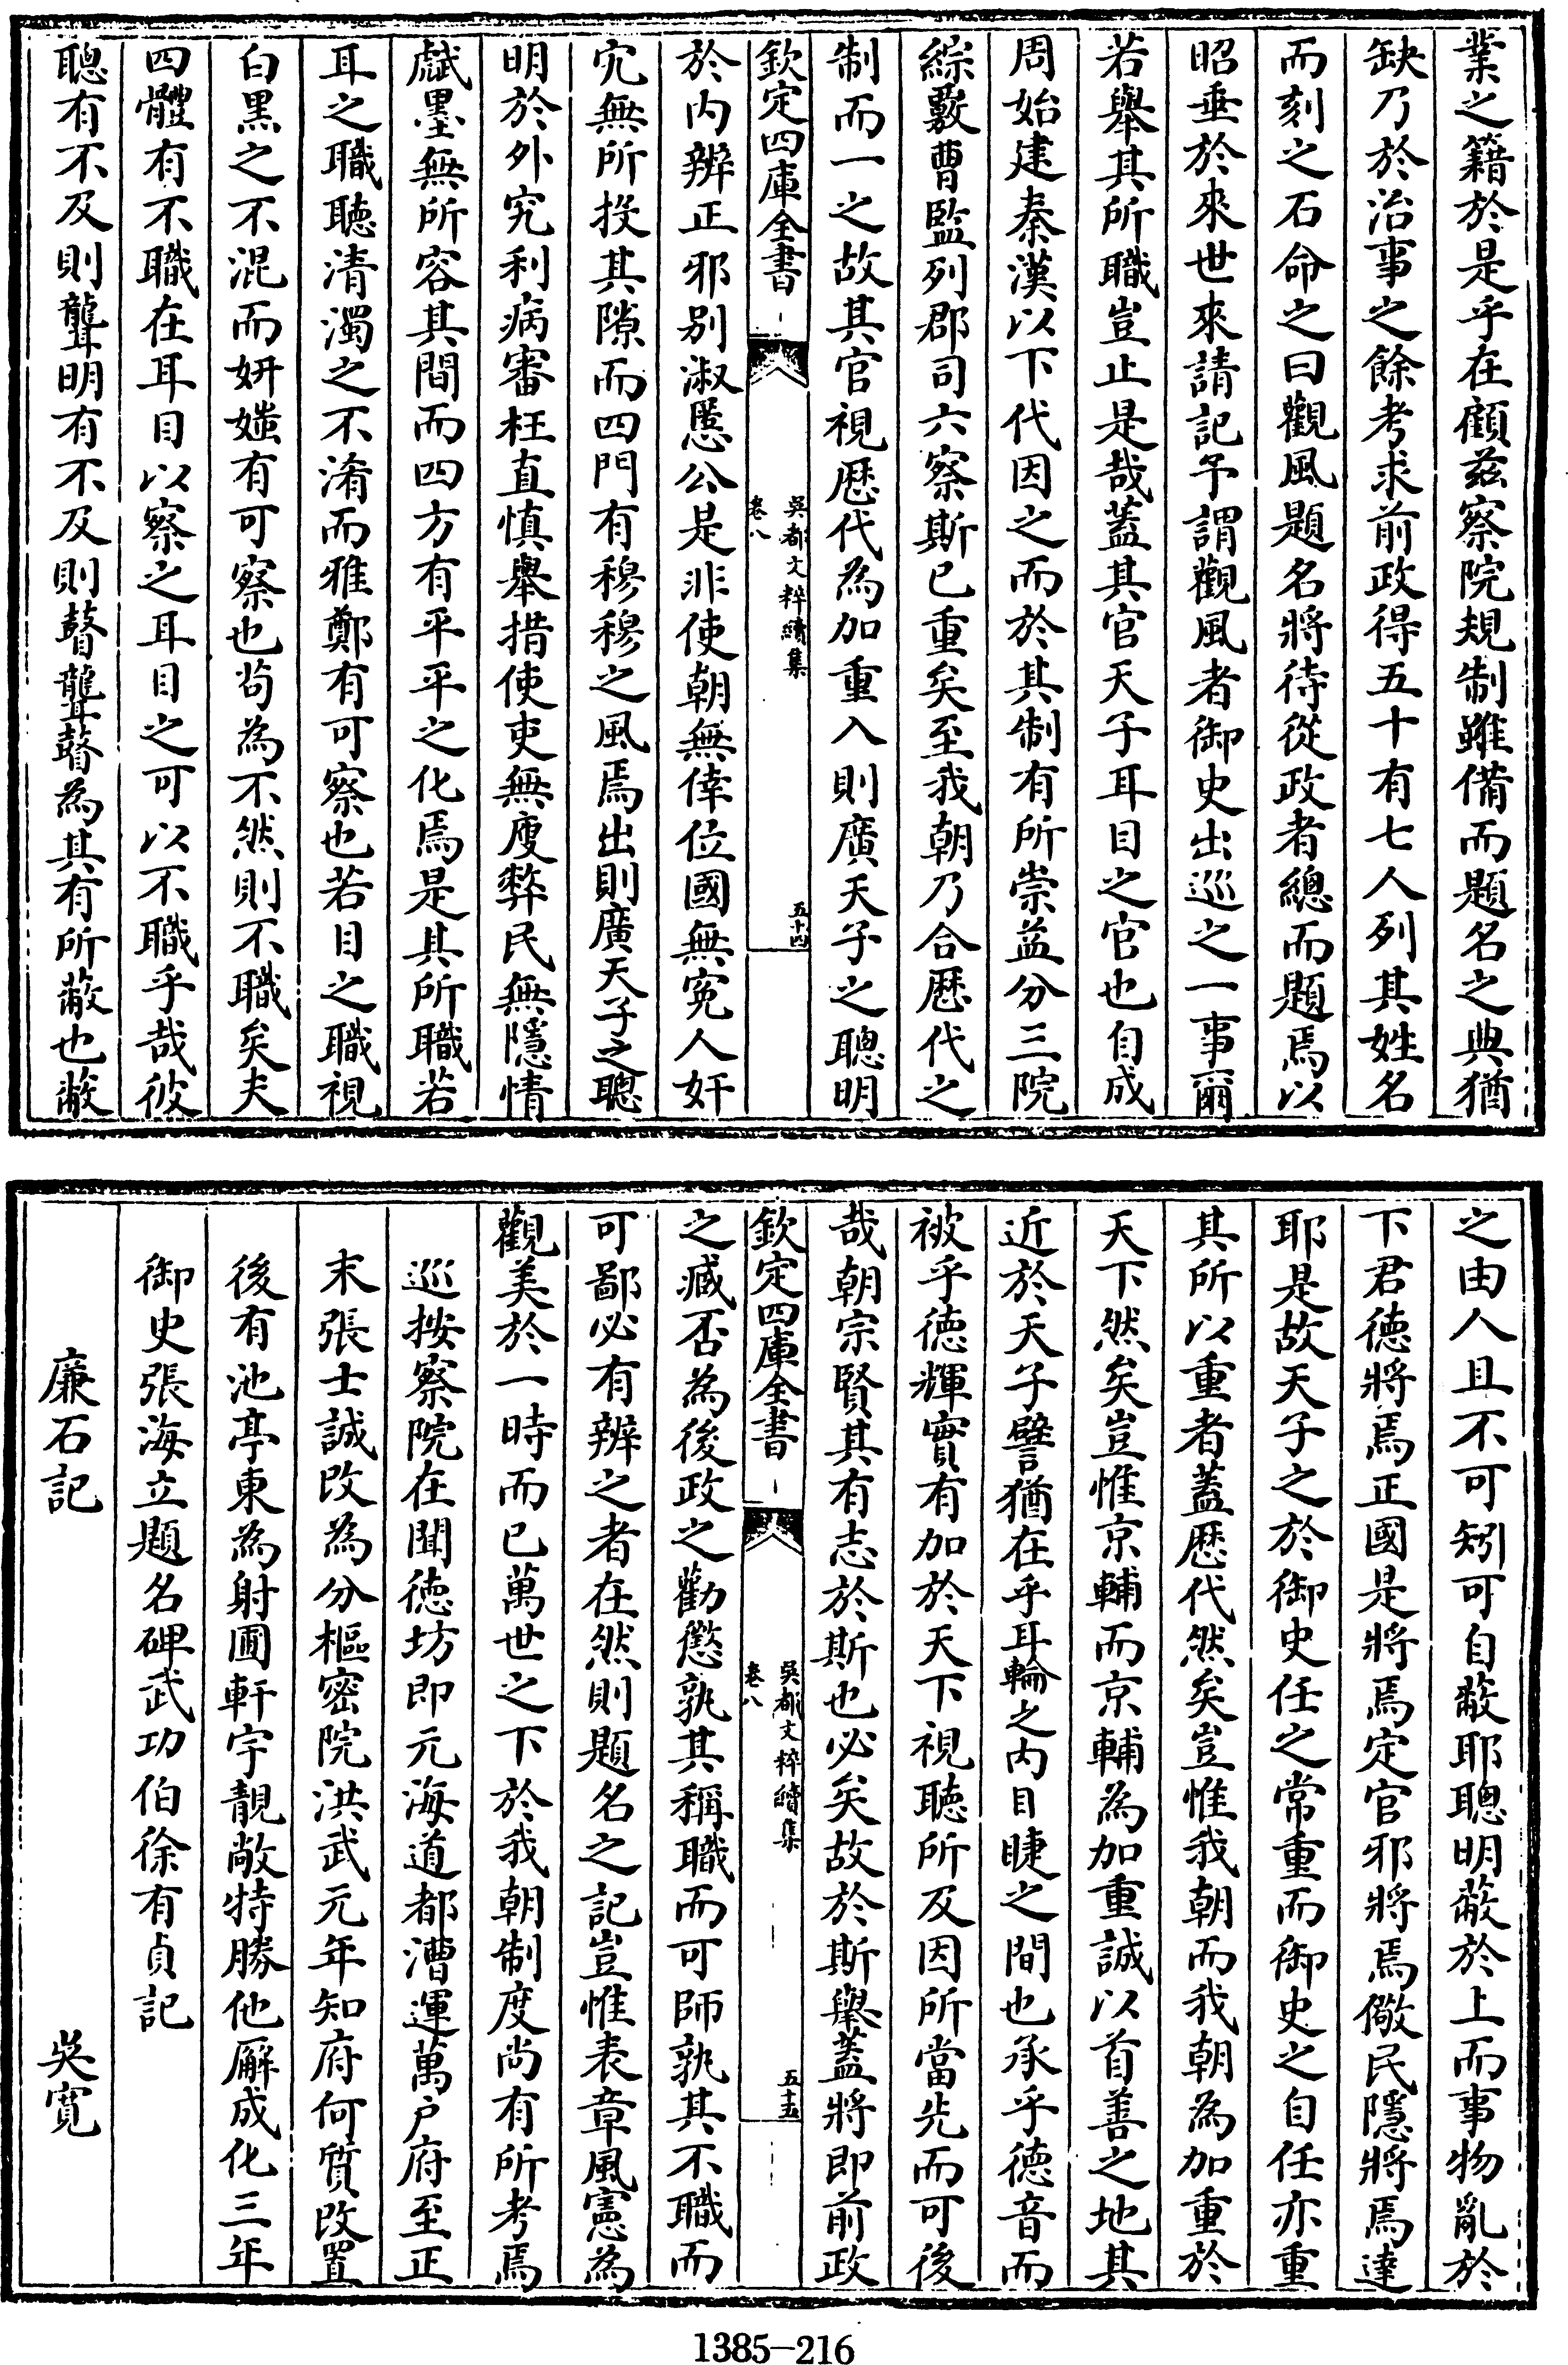 業之籍於是乎在顧兹察院規制雖備而題名之典猶
缺乃於治事之餘考求前政得五十有七人列其姓名
而刻之石命之曰觀風題名將待從政者總而題焉以
昭垂於來世來請記予謂觀風者御史出巡之一事爾
若舉其所職豈止是哉蓋其官天子耳目之官也自成
周始建秦漢以下代因之而於其制有所崇益分三院
綜覈曹監列郡司六察斯已重矣至我朝乃合歴代之
制而一之故其官視歴代為加重入則廣天子之聰明
欽定四庫全書
吳都文粹續集
卷八
五十四
於内辨正邪别淑慝公是非使朝無倖位國無寃人奸
宄無所投其隙而四門有穆穆之風焉出則廣天子之聰
明於外究利病審枉直慎舉措使吏無廋弊民無隱情
贓墨無所容其間而四方有平平之化焉是其所職若
耳之職聽清濁之不淆而雅鄭有可察也若目之職視
白黑之不混而妍媸有可察也茍為不然則不職矣夫
四體有不職在耳目以察之耳目之可以不職乎哉彼
聰有不及則聾明有不及則瞽聾瞽為其有所蔽也蔽
之由人且不可矧可自蔽耶聰明蔽於上而事物亂於
下君德將焉正國是將焉定官邪將焉儆民隱將焉達
耶是故天子之於御史任之常重而御史之自任亦重
其所以重者蓋歴代然矣豈惟我朝而我朝為加重於
天下然矣豈惟京輔而京輔為加重誠以首善之地其
近於天子譬猶在乎耳輪之内目睫之間也承乎德音而
被乎德輝實有加於天下視聽所及因所當先而可後
哉朝宗賢其有志於斯也必矣故於斯舉蓋將即前政
欽定四庫全書
吳都文粹續集
卷八
五十五
之臧否為後政之勸懲孰其稱職而可師孰其不職而
可鄙必有辨之者在然則題名之記豈惟表章風憲為
觀美於一時而已萬世之下於我朝制度尚有所考焉
巡按察院在聞德坊即元海道都漕運萬户府至正
末張士誠改為分樞密院洪武元年知府何質改置
後有池亭東為射圃軒宇靚敞特勝他廨成化三年
御史張海立題名碑武功伯徐有貞記
廉石記 吳寛
1385-216